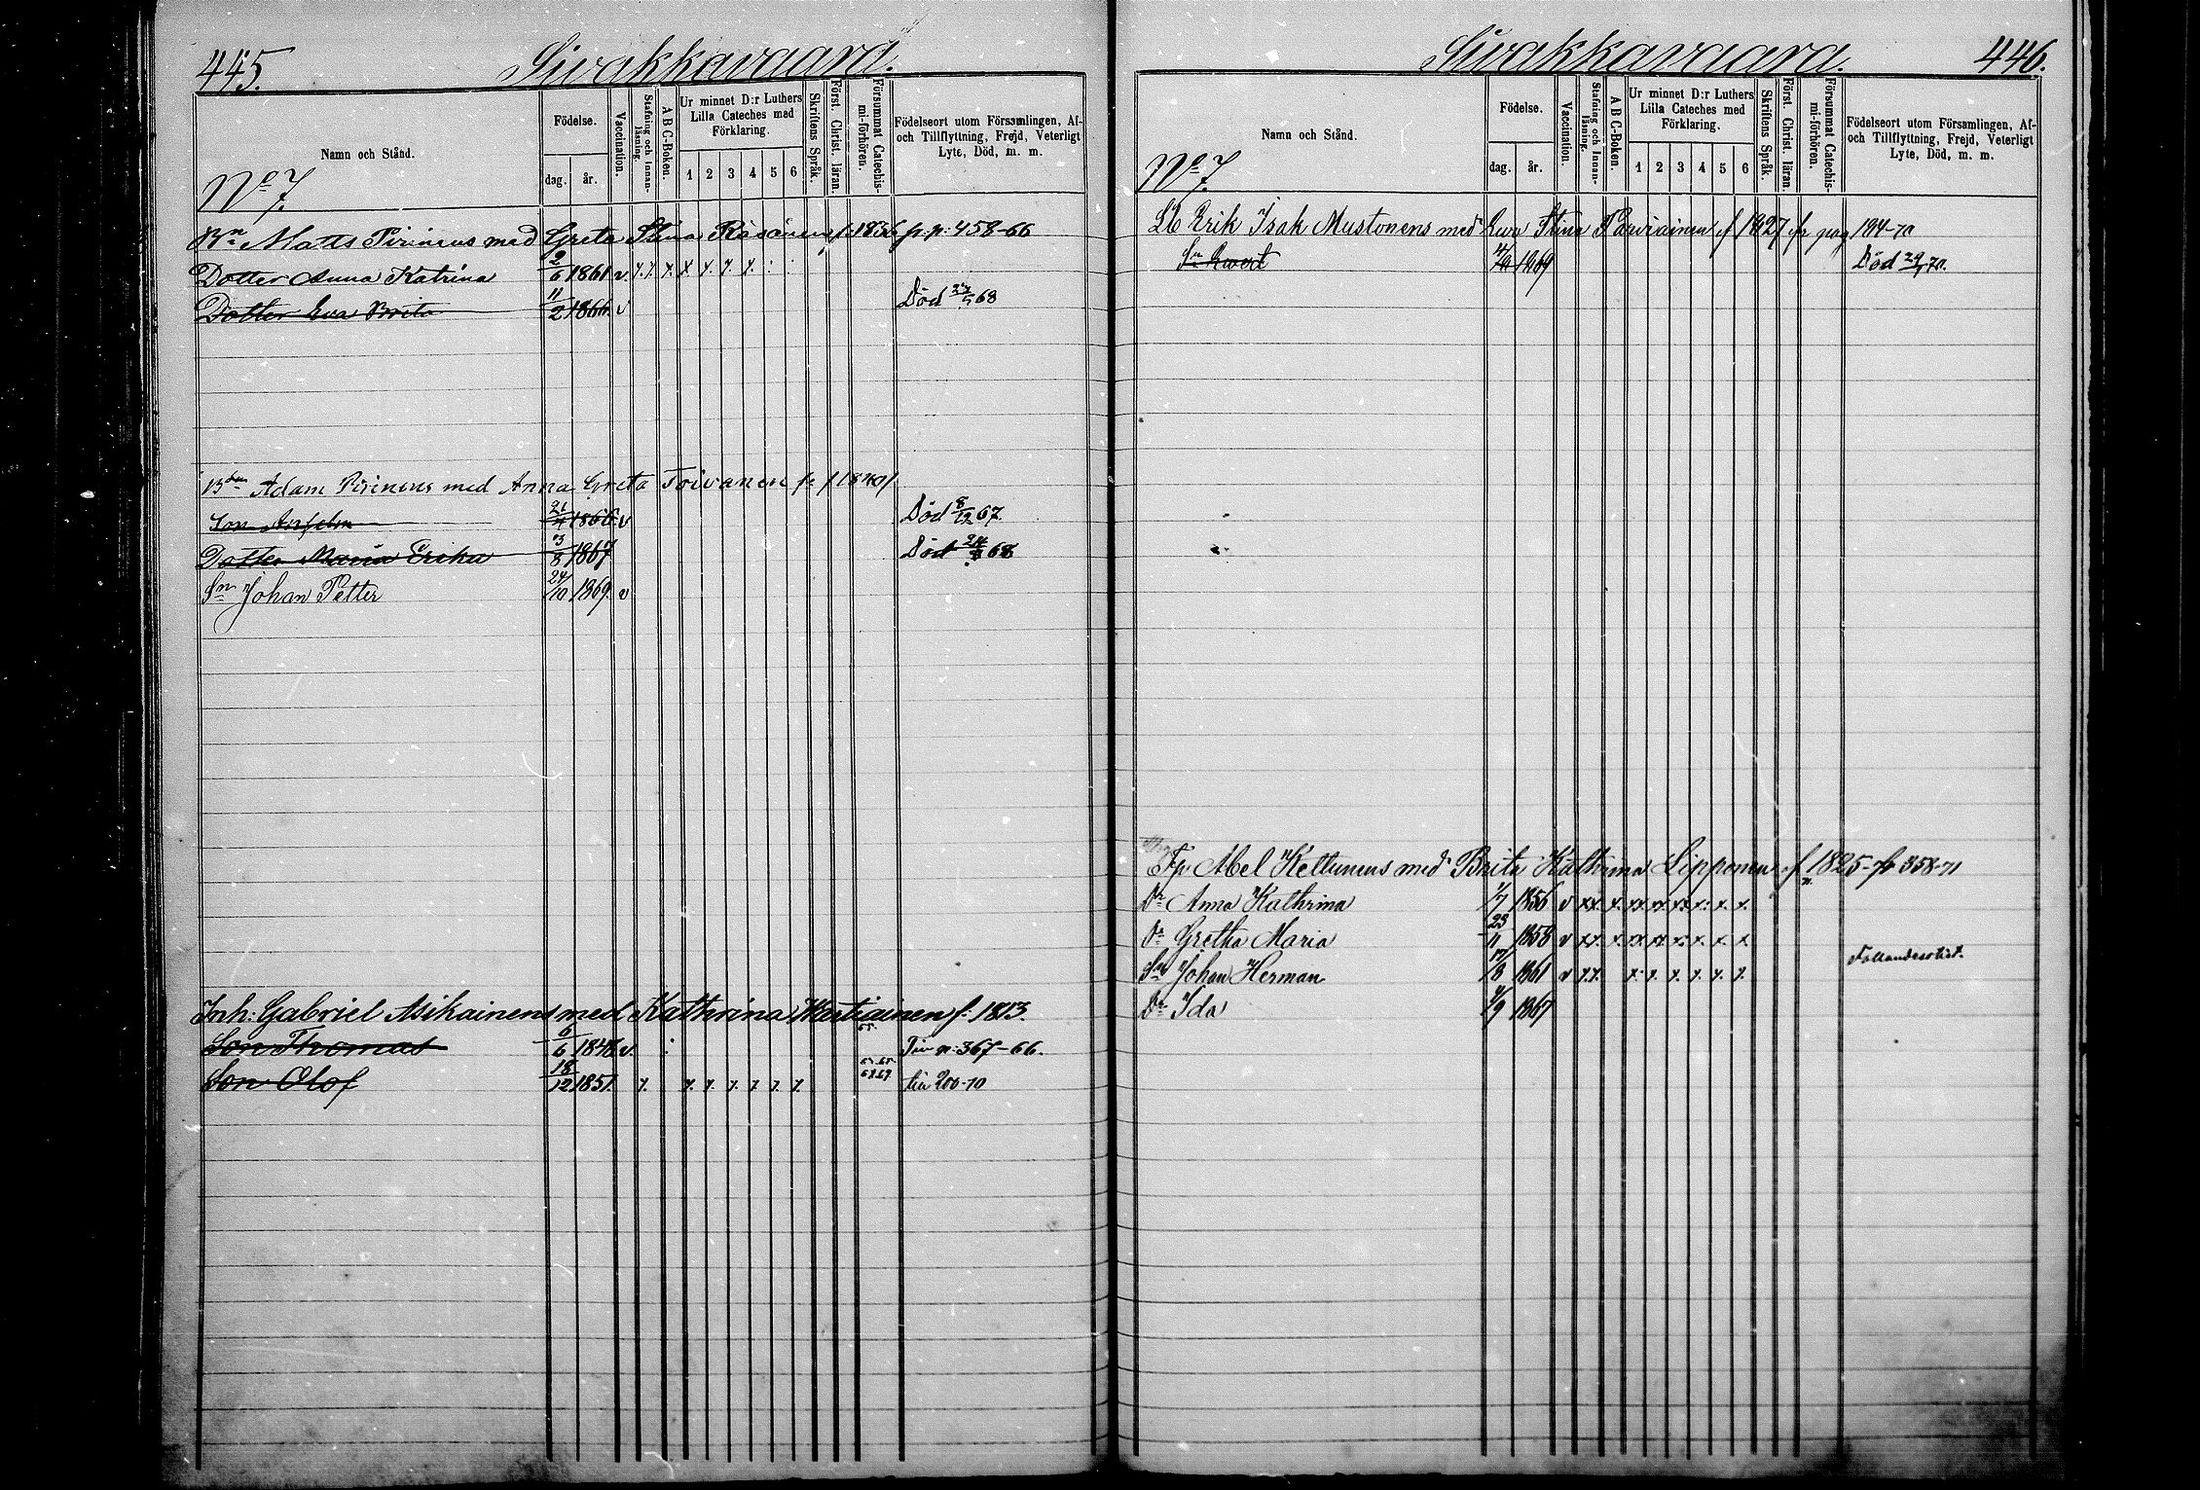 445. Sivakkavaara.
Namn och Stånd.
Födelse.
dag. år.
Vaccination.
Stafning och Innan-läsning.
A B C-Boken.
Ur minnet D:r Luthers Lilla Cateches med Förklaring.
1 2 3 4 5 6
Skriftens Språk.
Först. Christ. läran.
Försummat Catechis-mi-förhören.
Födelseort utom Församlingen, Af- och Tillflyttning, Frejd, Veterligt Lyte, Död, m. m.
No 7.
Bn Matts Pirinens med Greta Stina Räsänens f. 1836 fr. p: 458-66
Dotter Anna Katrina 2/6 1861 v
Dotter Eva Brita 11/2 1866 v Död 68
Adam Pirinens med Anna Greta Toivanen f 1840
Son 1866 v Död 8/12 67.
Dotter Maria Erika 3/8 1867 Död 68
Sn Johan Petter 24/10 1869. v
Inh: Gabriel Asikainens med Kathrina Martiainen f. 1813.
Son Thomas 6/6 1848 v. 65. p: 367-66.
Son Olof 18/12 1851. till 200-70
Sivakkavaara. 446.
Namn och Stånd.
Födelse.
dag. år.
Vaccination.
Stafning och Innan-läsning.
A B C-Boken.
Ur minnet D:r Luthers Lilla Cateches med Förklaring.
1 2 3 4 5 6
Skriftens Språk.
Först. Christ. läran.
Försummat Catechis-mi-förhören.
Födelseort utom Församlingen, Af- och Tillflyttning, Frejd, Veterligt Lyte, Död, m. m.
No 7.
Erik Isak Mustonens med Ewa Stina Parviainen f 1827 fr pag 194-70
Sn 1869 Död 70.
Abel Keltunens med Brita Kathrina Lipponen f. 1825 fr 358-71
Dr Anna Kathrina 1/7 1856 v
Dr Gretha Maria 23/11 1858 v
Sn Johan Herman 17/8 1861 v
Dr Ida 4/9 1867